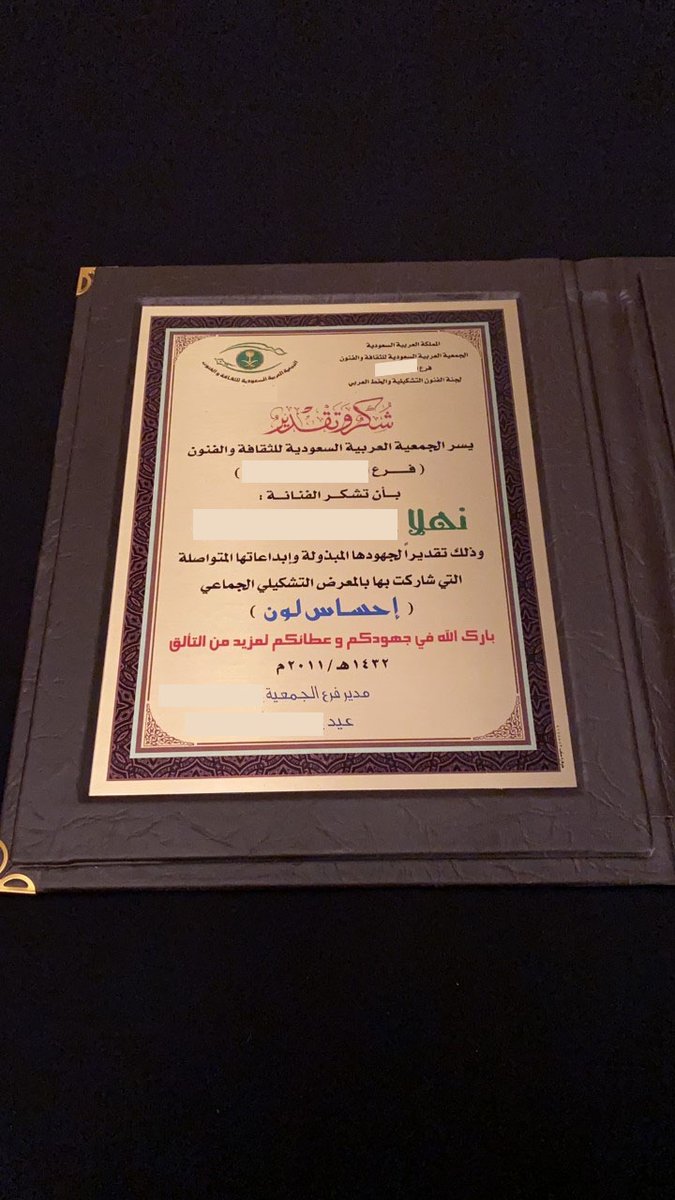 المملكة العربية السعودية
الجمعية العربية السعودية للثقافة والفنون
فرع
لجنة الفنون التشكيلية والخط العربي
الجمعية العربية السعودية للثقافة والفنون
شكر وتقدير
يسر الجمعية العربية السعودية للثقافة والفنون
( فـــرع )
بـأن تشكـر الفنـانـة :
نهلا
وذلك تقديراً لجهودها المبذولة وإبداعاتها المتواصلة
التي شاركت بها بالمعرض التشكيلي الجماعي
( إحساس لون )
بارك الله في جهودكم و عطائكم لمزيد من التألق
١٤٣٢هـ/٢٠١١م
مدير فرع الجمعية
عيد